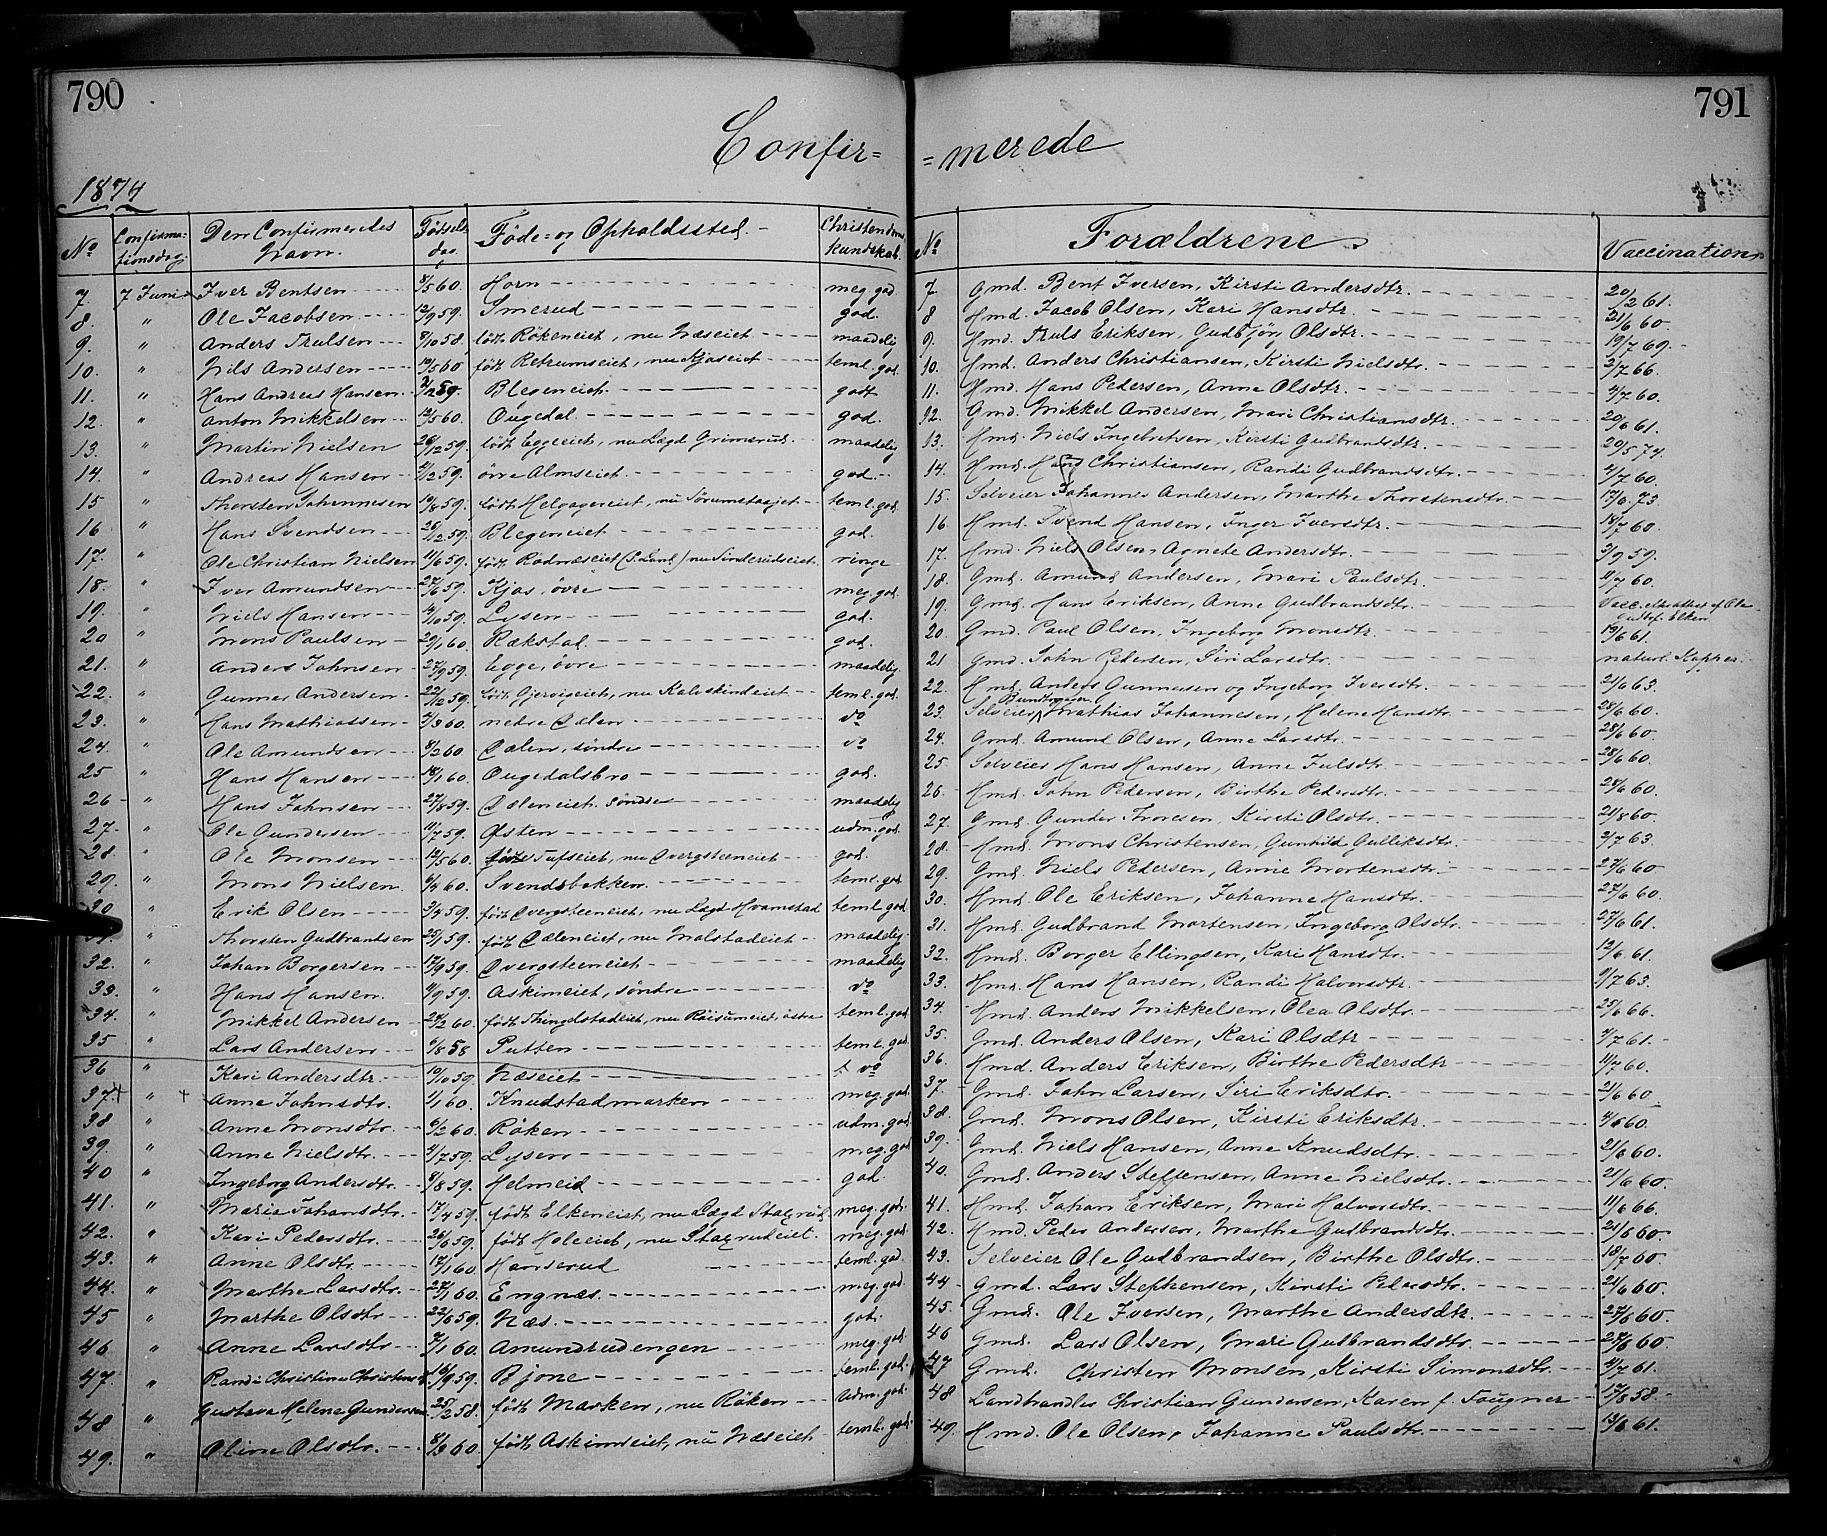 790
791
Confir= =merede
1874
No Confirmationsdag Den Confirmeredes Navn. Fødselsdag. Føde= og Opholdssted. Christendomskundskab. No Forældrene Vaccination
7. 7 Juni Iver Bentsen 8/5 60. Horn meg. god 7. Gmd. Bent Iversen, Kirsti Andersdtr. 20/2 61.
8. " Ole Jacobsen 12/9 59. Smerud god. 8 Hmd. Jacob Olsen, Kari Hansdtr. 21/6 60.
9. " Anders Trulsen 8/10 58. født Røkeneiet, nu Næseiet maadelig 9. Hmd. Truls Eriksen, Gudbjør Olsdtr. 19/7 69.
10. " Nils Andersen født Retrumseiet, nu Kjøseiet teml. god. 10. Hmd. Anders Christiansen, Kirsti Nielsdtr. 2/7 66.
11. " Hans Andreas Hansen Blegeneiet godt 11. Hmd. Hans Pedersen, Anne Olsdtr. 4/7 60.
12 " Anton Mikkelsen 12/5 60. Ougedal god. 12. Gmd. Mikkel Andersen, Mari Christiansdtr. 20/6 61.
13. " Martin Nielsen 26/12 59. født Eggeeiet, nu Lægd Grimsrud maadelig 13. Hmd. Niels Ingebritsen, Kirsti Gudbrandsdtr. 20/5 74.
14. " Andreas Hansen 2/12 59. øvre Almseiet god. 14. Hmd. Hans Christiansen, Randi Gudbrandsdtr. 4/7 60.
15 " Thorsten Johannesen 10/8 59. født Helgagereiet, nu Sørumstagjet teml. god. 15. Selveier Johannes Andersen, Marthe Thorstensdtr. 17/6 73
16 " Hans Svendsen 26/12 59. Blegeneiet god. 16. Hmd. Svend Hansen, Inger Iversdtr. 18/7 60.
17. " Ole Christian Nielsen 11/6 59. født Rødnæseiet (S. Land) nu Sinderudseiet ringe 17. Hmd. Niels Olsen, Agnete Andersdtr. 3/9 59.
18. " Iver Amundsen 27/6 59. Kjøs, øvre meg. god. 18. Gmd. Amund Andersen, Mari Paulsdtr. 11/7 60.
19. " Niels Hansen 4/10 59. Lysen god. 19. Gmd. Hans Eriksen, Anne Gudbrandsdtr. Vacc. Attest af Ole Gudbr. Elken
20 " Mons Paulsen 29/1 60. Rækstad god. 20. Gmd. Paul Olsen, Ingeborg Monsdtr. 19/6 61.
21. " Anders Johnsen 27/9 59. Egge, øvre maadelig 21 Gmd. John Pedersen, Siri Larsdtr. naturl. Kopper.
22. " Gunner Andersen 22/12 59. født Gjerviseiet, nu Kalvskindeiet teml. god. 22. Hmd. Anders Gunnersen og Ingeborg Iversdtr. 21/6 63.
23. " Hans Mathiassen 2/3 60. nedre Dælen do 23. Selveier Mathias Johannesen, Helene Hansdtr. 28/6 60.
24. " Ole Amundsen 8/2 60 Dælen, søndre do 24. Gmd. Amund Olsen, Anne Larsdtr. 28/6 60.
25 " Hans Hansen 18/1 60. Ougedalsbro god. 25 Selveier Hans Hansen, Anne Julsdtr. 28/6 60.
26 " Hans Johnsen 27/8 59. Dæleneiet, søndre maadelig 26. Hmd. John Pedersen, Birthe Pedersdtr. 28/6 60.
27. " Ole Gundersen 11/7 59. Østen udm. god 27. Gmd. Gunder Iversen, Kirsti Olsdtr. 21/8 60.
28. " Ole Monsen 12/5 60. født Tufseiet, nu Dvergsteeneiet god. 28. Hmd. Mons Christensen, Gunhild Gulliksdtr. 2/7 63.
29. " Mons Nielsen 6/4 60. Svendsbakken teml. god 29. Gmd. Niels Pedersen, Anne Mortensdtr. 27/6 60
30 " Erik Olsen 3/4 59. født Dvergsteeneiet, nu Lægd Hvamstad teml. god 30. Hmd. Ole Eriksen, Johanne Hansdtr. 27/6 60.
31. " Thorsten Gudbrandsen 25/1 59. født Dæleneiet, nu Molstadeiet maadelig. 31. Hmd. Gudbrand Mortensen, Ingeborg Olsdtr. 27/6 61.
32. " Johan Borgersen 17/9 59. Dvergsteeneiet maadelig 32. Hmd. Borger Ellingsen, Kari Hansdtr. 13/6 61.
33. " Hans Hansen. 9/9 59. Askimeiet, søndre do 33. Hmd. Hans Hansen, Randi Halvorsdtr. 9/7 63.
34. " Mikkel Andersen 24/2 60. født Thingelstadeiet, nu Røisumeiet, østre teml. god 34. Hmd. Anders Mikkelsen, Olea Olsdtr. 25/6 66.
35 " Lars Andersen 6/8 58 Putten teml. god. 35. Gmd. Anders Olsen, Kari Olsdtr 4/7 61.
36 " Kari Andersdtr. 10/10 59. Næseiet do 36. Hmd. Anders Eriksen, Birthe Pedersdtr 11/7 60.
37. " Anne Johnsdtr. 1/1 60. Knudstadmarken meg. god. 37. Gmd. John Larsen, Siri Eriksdtr. 21/6 60.
38 " Anne Monsdtr. 6/2 60. Røken udm. god. 38. Gmd. Mons Olsen, Kirsti Eriksdtr. 4/6 60.
39. " Anne Nielsdtr. 4/7 59. Lysen meg. god 39. Gmd. Niels Hansen, Anne Knudsdtr. 21/6 60.
40 " Ingeborg Andersdtr. 8/8 59. Helmeid god. 40. Gmd. Anders Steffensen, Anne Nielsdtr. 21/6 60.
41. " Maria Johansdtr. 17/4 59. født Elkeneiet, nu Lægd Stagrud meg. god. 41. Hmd. Johan Eriksen, Mari Halvorsdtr. 11/6 66.
42. " Kari Pedersdtr. 26/6 59. født Holeeiet, nu Stagrudeiet. meg. god 42. Hmd. Peder Andersen, Marthe Gudbrandsdtr. 21/6 60.
43. " Anne Olsdtr. 17/1 60. Hanserud teml. god. 43. Selveier Ole Gudbrandsen, Birthe Olsdtr. 18/7 60.
44. " Marthe Larsdtr. 27/1 60. Engnæs. meg. god. 44 Gmd. Lars Stephensen, Kirsti Pedersdtr. 21/6 60.
45 " Marthe Olsdtr. 22/6 59. Næs. god. 45. Gmd. Ole Iversen, Marthe Andersdtr. 27/6 60.
46 " Anne Larsdtr. 7/1 60. Amundrudengen meg. god. 46 Gmd. Lars Olsen, Mari Gudbrandsdtr. 27/6 60.
47. " Randi Christine Christensd. 16/9 59. Bjone teml. god. 47 Gmd. Christen Monsen, Kirsti Simonsdtr. 4/7 61.
48 " Gustava Helene Gundersen. 25/2 58. født Marken, nu Røken udm. god. 48 Landhandler Christian Gundersen, Karen f. Fougner 17/8 58.
49. " Oline Olsdtr. 8/3 60. født Askimseiet, nu Næseiet teml. god. 49. Hmd. Ole Olsen, Johanne Paulsdtr. 13/6 61.